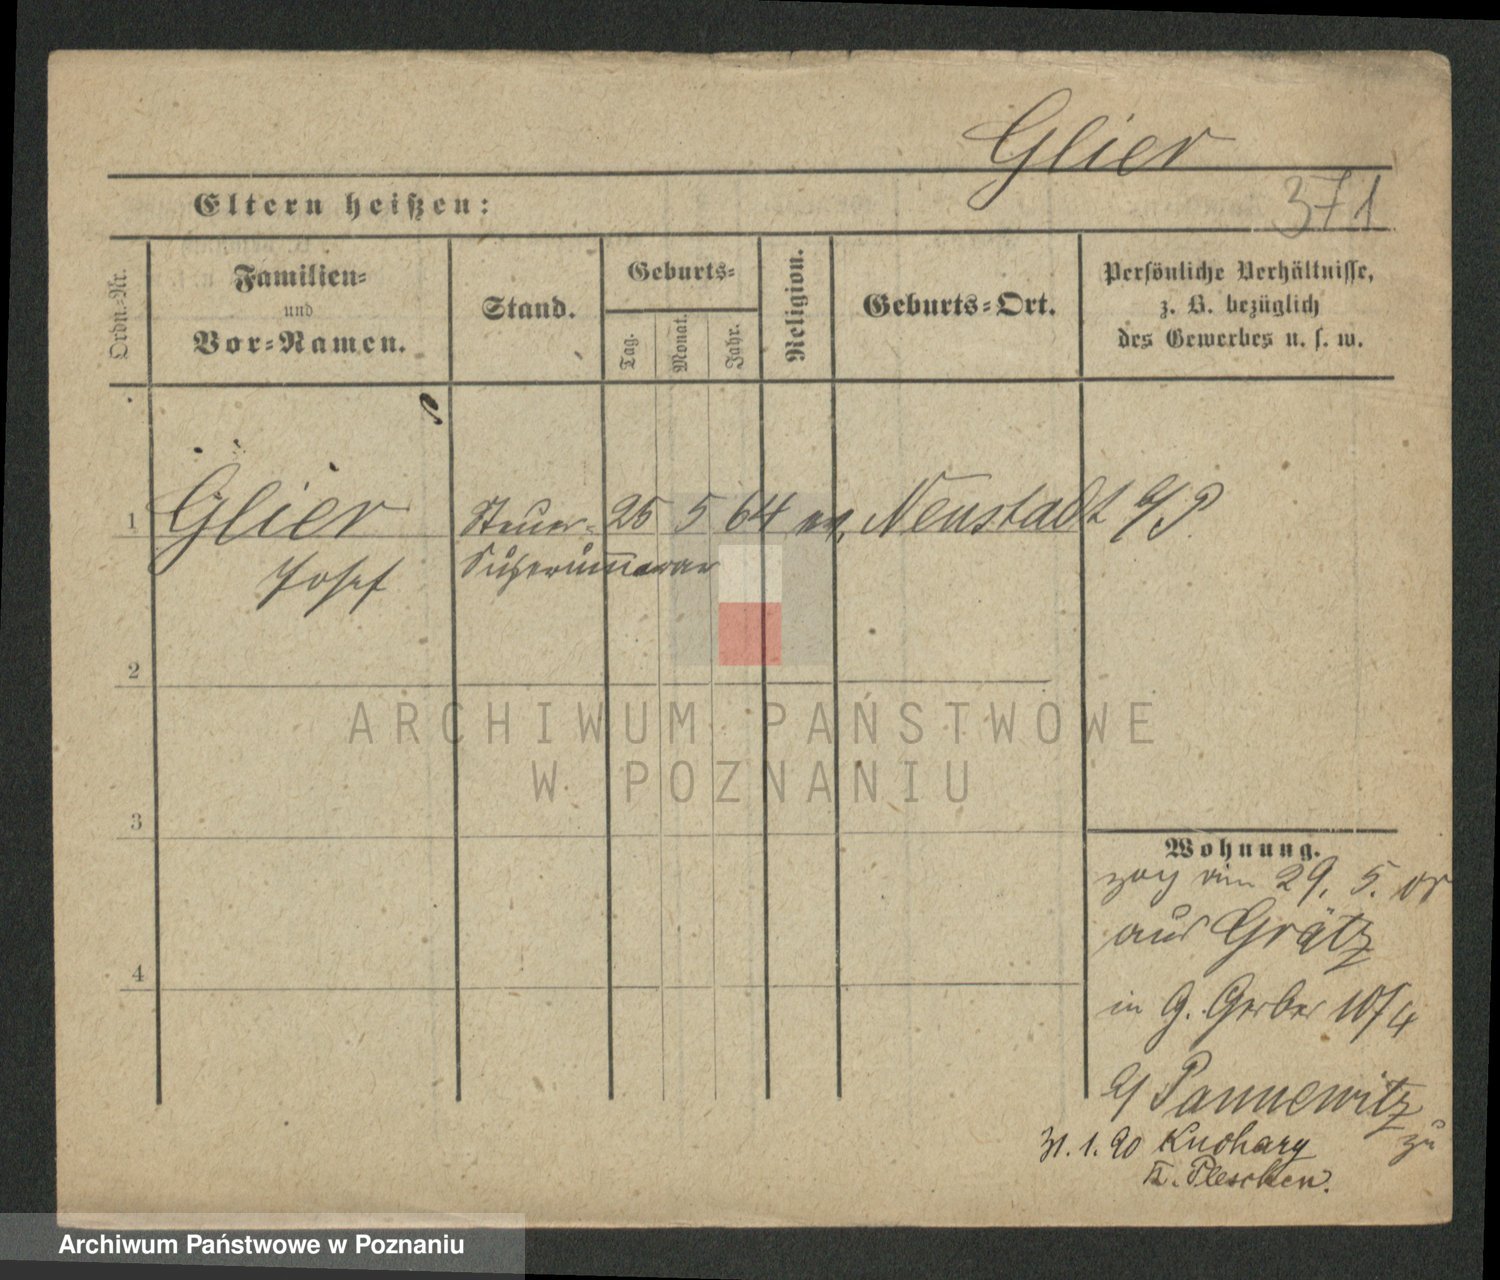 Glier
371
Eltern heißen:
Ordn.-Nr.
Familien-
und
Vor-Namen.
Stand.
Geburts-
Tag.
Monat.
Jahr.
Religion.
Geburts-Ort.
Persönliche Verhältnisse,
z. B. bezüglich
des Gewerbes u. s. w.
1 Glier Steuer- 25 5 64 ev. Neustadt a/P.
Josef Supernumerar
2
3
4
Wohnung.
zog am 29. 5.
aus Grätz
in G. Gerber 10/4
Pannewitz
zu
31. 1. 90
K. Pleschen.
ARCHIWUM PAŃSTWOWE
W POZNANIU
Archiwum Państwowe w Poznaniu